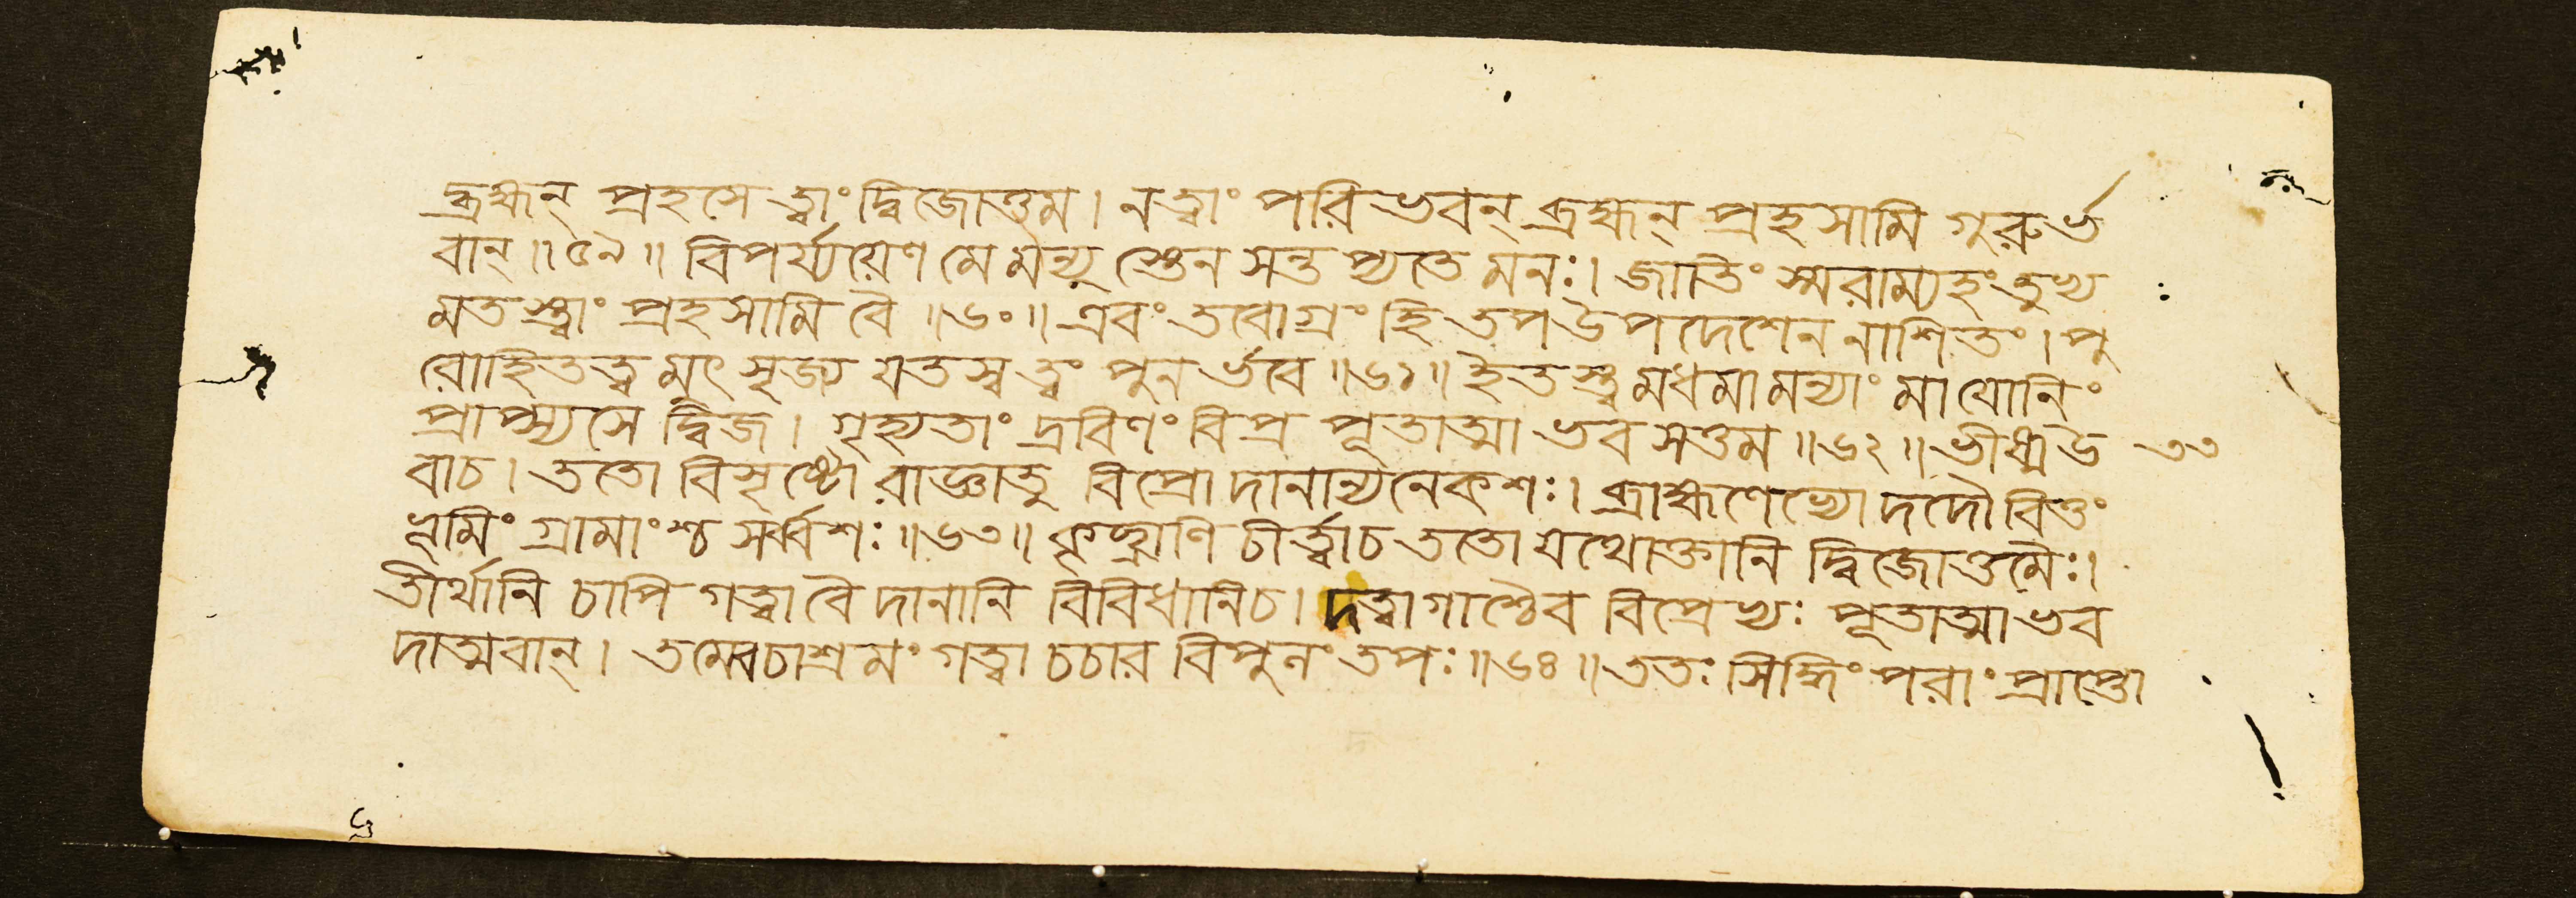 দ্ব্রহ্মন্ প্রহসে ত্বাং দ্বিজোত্তম। ন ত্বাং পরিভবন্ ব্রহ্মন্ প্রহসামি গুরুর্ভ
বান্॥৫৯॥ বিপর্য্যয়েণ মে মন্যুস্তেন সন্তপ্যতে মনঃ। জাতিং স্মরাম্যহং তুভ্য
মতস্ত্বাং প্রহসামি বৈ॥৬০॥ এবং তবোগ্রং হি তপ উপদেশেন নাশিতং। পু
রোহিতত্বমুৎসৃজ্য যতস্ব ত্বং পুনর্ভবে॥৬১॥ ইতস্ত্বমধমামন্যাং মা যোনিং
প্রাপ্স্যসে দ্বিজ। গৃহ্যতাং দ্রবিণং বিপ্র পূতাত্মা ভব সত্তম॥৬২॥ ভীষ্ম উ
৩৩
বাচ। ততো বিসৃষ্টো রাজ্ঞা তু বিপ্রো দানান্যনেকশঃ। ব্রাহ্মণেভ্যো দদৌ বিত্তং
ভূমিং গ্রামাংশ্চ সর্ব্বশঃ॥৬৩॥ কৃচ্ছ্রাণি চীর্ত্বা চ ততো যথোক্তানি দ্বিজোত্তমৈঃ।
তীর্থানি চাপি গত্বা বৈ দানানি বিবিধানি চ। দত্বা গাশ্চৈব বিপ্রেভ্যঃ পূতাত্মাভব
দাত্মবান্। তমেব চাশ্রমং গত্বা চচার বিপুলং তপঃ॥৬৪॥ ততঃ সিদ্ধিং পরাং প্রাপ্তো